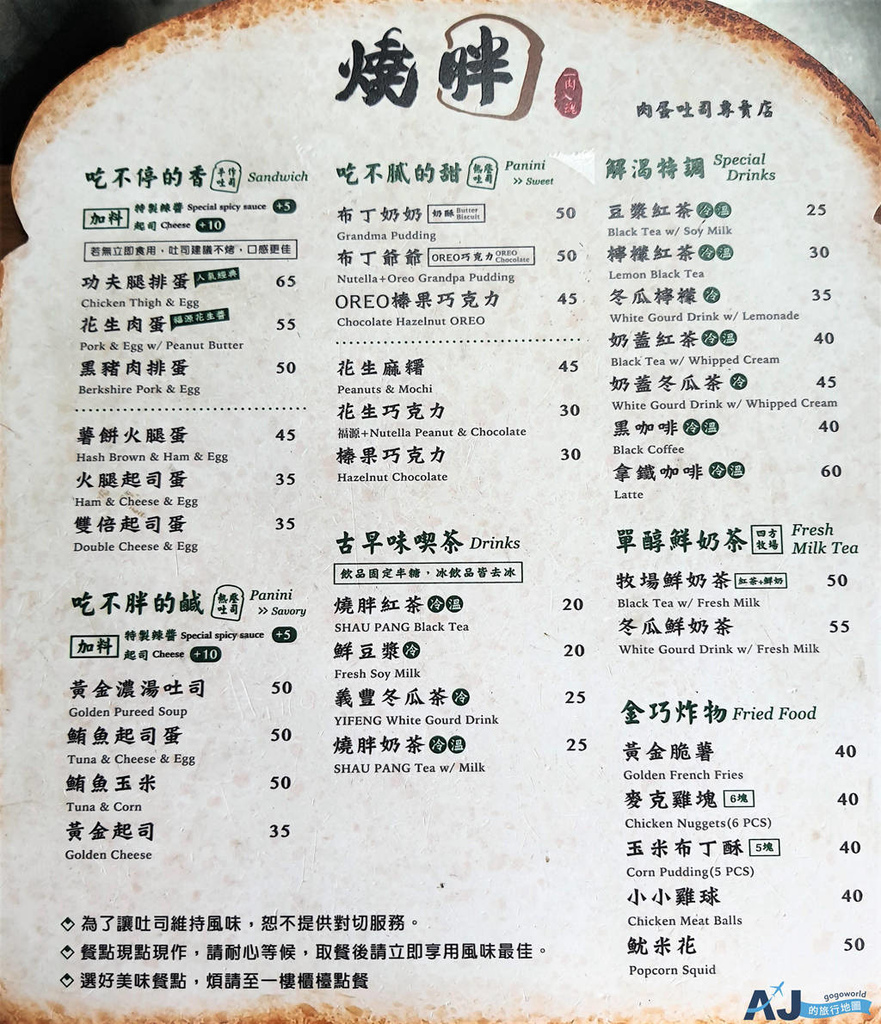 燒胖
一肉入魂
肉蛋吐司專賣店
吃不停的香 手作吐司 Sandwich
加料 特製辣醬 Special spicy sauce +5
起司 Cheese +10
若無立即食用,吐司建議不烤,口感更佳
功夫腿排蛋 人氣經典 65
Chicken Thigh & Egg
花生肉蛋 福源花生醬 55
Pork & Egg w/ Peanut Butter
黑豬肉排蛋 50
Berkshire Pork & Egg
薯餅火腿蛋 45
Hash Brown & Ham & Egg
火腿起司蛋 35
Ham & Cheese & Egg
雙倍起司蛋 35
Double Cheese & Egg
吃不胖的鹹 熱壓吐司 Panini
>> Savory
加料 特製辣醬 Special spicy sauce +5
起司 Cheese +10
黃金濃湯吐司 50
Golden Pureed Soup
鮪魚起司蛋 50
Tuna & Cheese & Egg
鮪魚玉米 50
Tuna & Corn
黃金起司 35
Golden Cheese
吃不膩的甜 熱壓吐司 Panini
>> Sweet
布丁奶奶 奶酥 Butter Biscuit 50
Grandma Pudding
布丁爺爺 OREO巧克力 OREO Chocolate 50
Nutella+Oreo Grandpa Pudding
OREO榛果巧克力 45
Chocolate Hazelnut OREO
花生麻糬 45
Peanuts & Mochi
花生巧克力 30
福源+Nutella Peanut & Chocolate
榛果巧克力 30
Hazelnut Chocolate
古早味喫茶 Drinks
飲品固定半糖,冰飲品皆去冰
燒胖紅茶 冷 溫 20
SHAU PANG Black Tea
鮮豆漿 冷 20
Fresh Soy Milk
義豐冬瓜茶 冷 25
YIFENG White Gourd Drink
燒胖奶茶 冷 溫 25
SHAU PANG Tea w/ Milk
解渴特調 Special
Drinks
豆漿紅茶 冷 溫 25
Black Tea w/ Soy Milk
檸檬紅茶 冷 溫 30
Lemon Black Tea
冬瓜檸檬 冷 35
White Gourd Drink w/ Lemonade
奶蓋紅茶 冷 溫 40
Black Tea w/ Whipped Cream
奶蓋冬瓜茶 冷 45
White Gourd Drink w/ Whipped Cream
黑咖啡 冷 溫 40
Black Coffee
拿鐵咖啡 冷 溫 60
Latte
單醇鮮奶茶 四方牧場 Fresh
Milk Tea
牧場鮮奶茶 紅茶+鮮奶 50
Black Tea w/ Fresh Milk
冬瓜鮮奶茶 55
White Gourd Drink w/ Fresh Milk
金巧炸物 Fried Food
黃金脆薯 40
Golden French Fries
麥克雞塊 6塊 40
Chicken Nuggets(6 PCS)
玉米布丁酥 5塊 40
Corn Pudding(5 PCS)
小小雞球 40
Chicken Meat Balls
魷米花 50
Popcorn Squid
為了讓吐司維持風味,恕不提供對切服務。
餐點現點現作,請耐心等候,取餐後請立即享用風味最佳。
選好美味餐點,煩請至一樓櫃檯點餐
AJ gogoworld
的旅行地圖